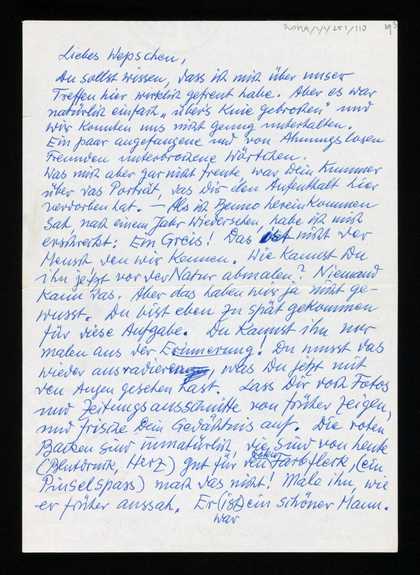 Liebes Wepschen,
Du sollst wissen, dass ich mich über unser
Treffen hier wirklich gefreut habe. Aber es war
natürlich einfach „übers Knie gebrochen" und
wir konnten uns nicht genug unterhalten.
Ein paar angefangene und von Ahnungslosen
Freunden unterbrochene Wörtchen.
Was mich aber gar nicht freute, war Dein Kummer
über das Porträt, das Dir den Aufenthalt hier
verdorben hat. — Als ich Benno hereinkommen
sah nach einem Jahr Wiedersehen, habe ich mich
erschreckt: Ein Greis! Das ist nicht der
Mensch den wir kennen. Wie kannst Du
ihn jetzt vor der Natur abmalen? Niemand
kann das. Aber das haben wir ja nicht ge-
wusst. Du bist eben zu spät gekommen
für diese Aufgabe. Du kannst ihn nur
malen aus der Erinnerung! Du musst das
wieder ausradieren, was Du jetzt mit
den Augen gesehen hast. Lass Dir doch Fotos
und Zeitungsausschnitte von früher zeigen,
und frische Dein Gedächtnis auf. Die roten
Backen sind unnatürlich, die sind von heute
(Blutdruck, Herz) gut für den Farbfleck (ein
Pinselspass) mach das nicht! Male ihn, wie
er früher aussah. Er (ist) ein schöner Mann.
war